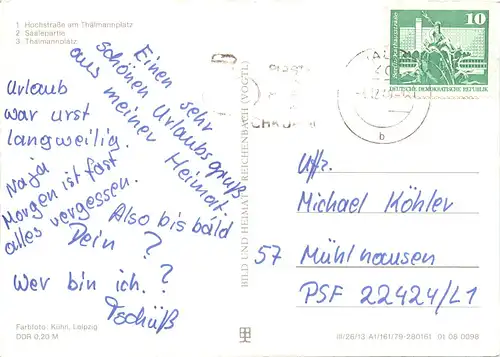 1 Hochstraße am Thälmannplatz
2 Saalepartie
3 Thälmannplatz
Einen sehr
schönen Urlaubsgruß
aus meiner Heimat.
Urlaub
war urst
langweilig.
Naja
Morgen ist fast
alles vergessen.
Also bis bald
Dein ?
Wer bin ich.?
Tschüß
Farbfoto: Kühn, Leipzig
DDR 0,20 M
BILD UND HEIMAT REICHENBACH (VOGTL)
10
DEUTSCHE DEMOKRATISCHE REPUBLIK
b
Uffz.
Michael Köhler
57 Mühlhausen
PSF 22424/L1
III/26/13 A1/161/79-280161 01 08 0098